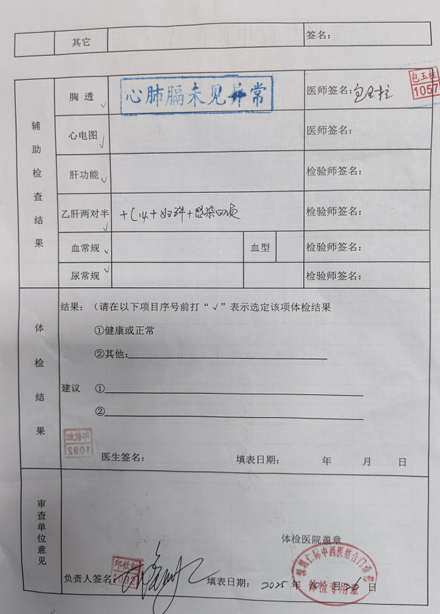 其它
签名：
辅助检查结果
胸 透 √
心肺膈未见异常
医师签名：
1057
心电图 √
医师签名：
肝功能 √
检验师签名：
乙肝两对半 √
检验师签名：
血常规 √
血型
检验师签名：
尿常规 √
检验师签名：
体检结果
结果：（请在以下项目序号前打“√”表示选定该项体检结果
①健康或正常
②其他：
建议 ①
②
1092
医生签名：
填表日期： 年 月 日
审查单位意见
体检医院盖章
体检专用章
负责人签名：
填表日期： 2025 年 月 日